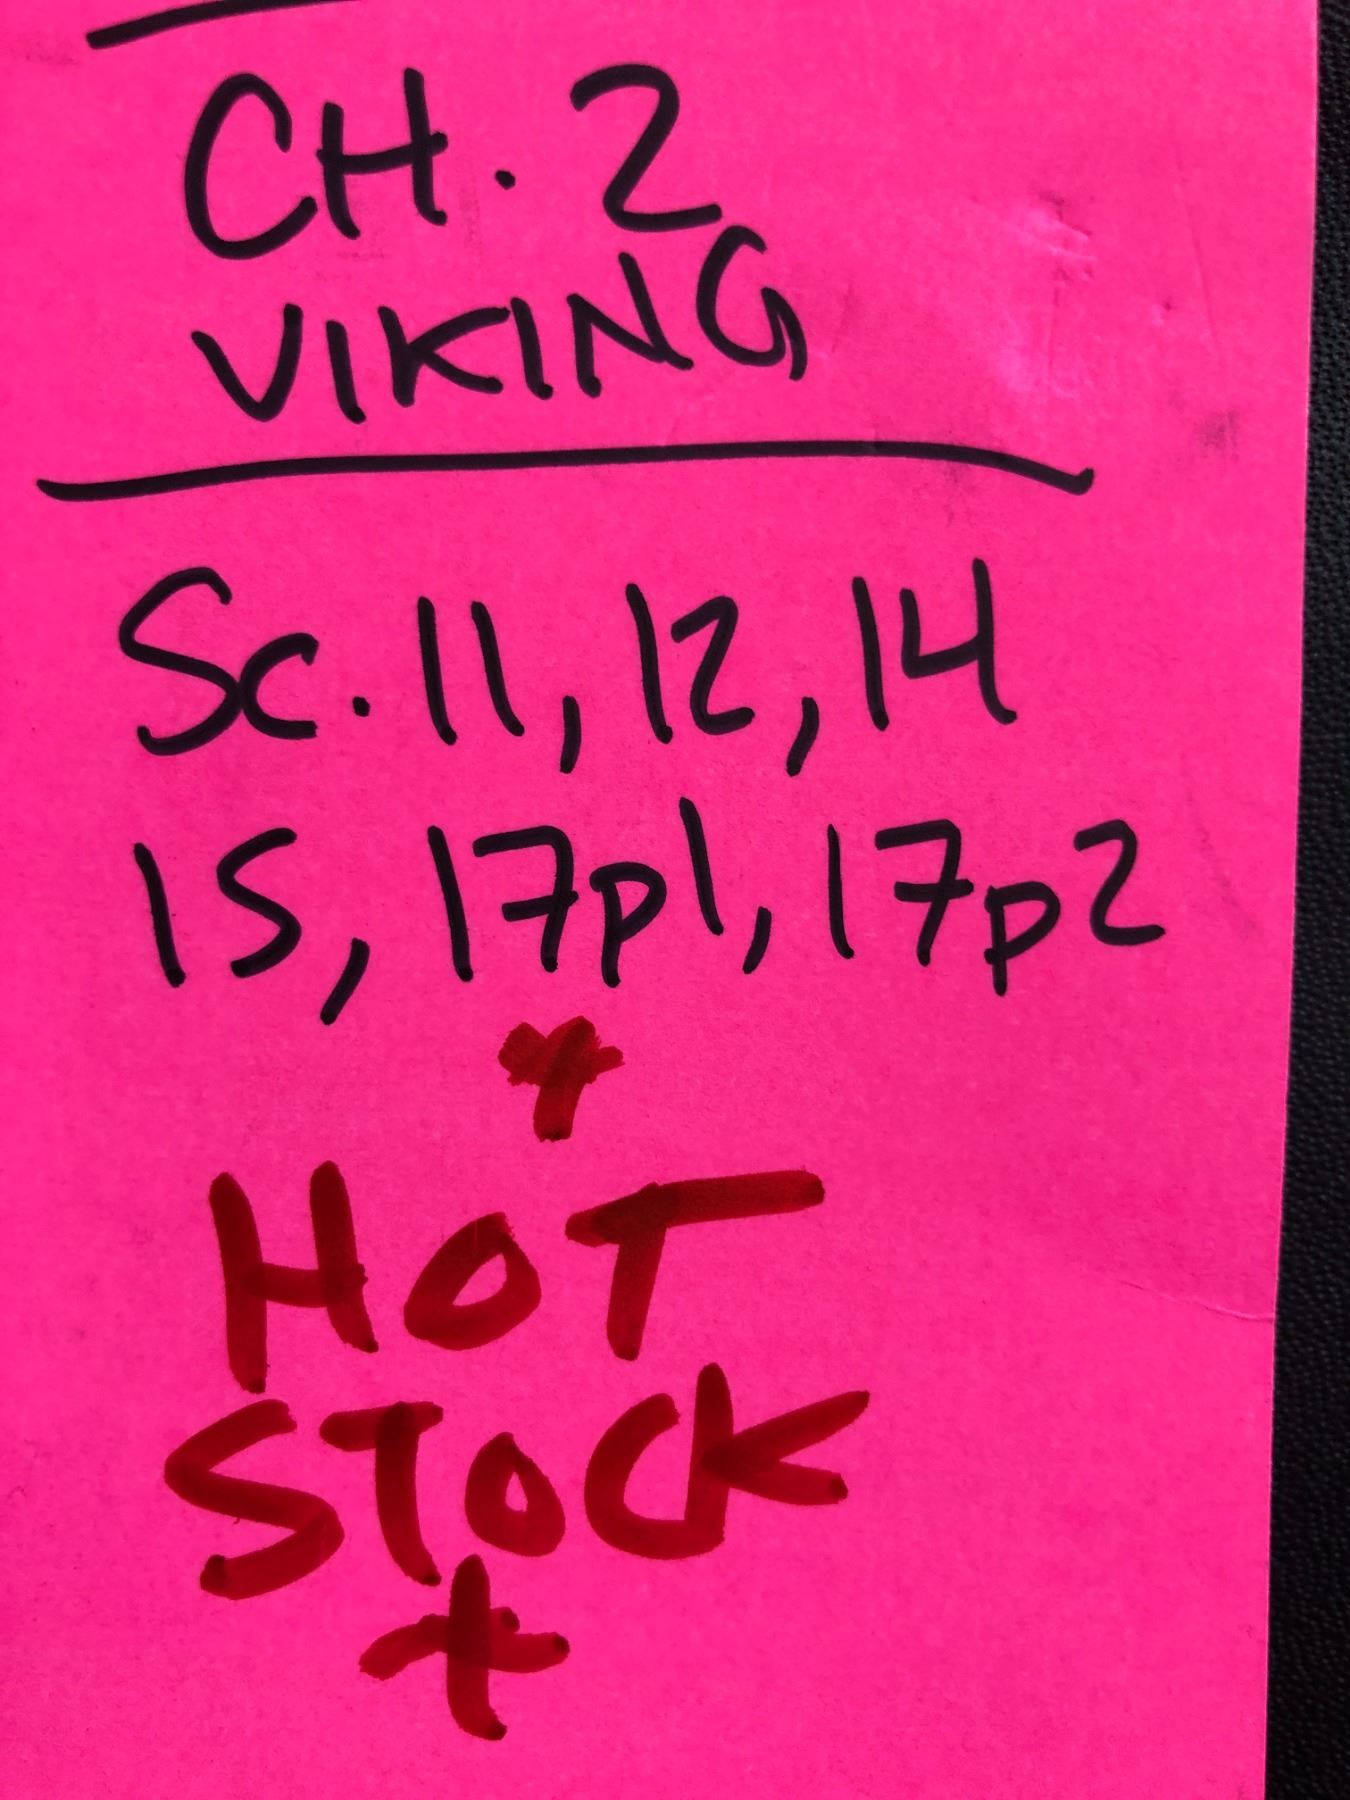 CH. 2
VIKING
Sc. 11, 12, 14
15, 17p1, 17p2
*
HOT
STOCK
*